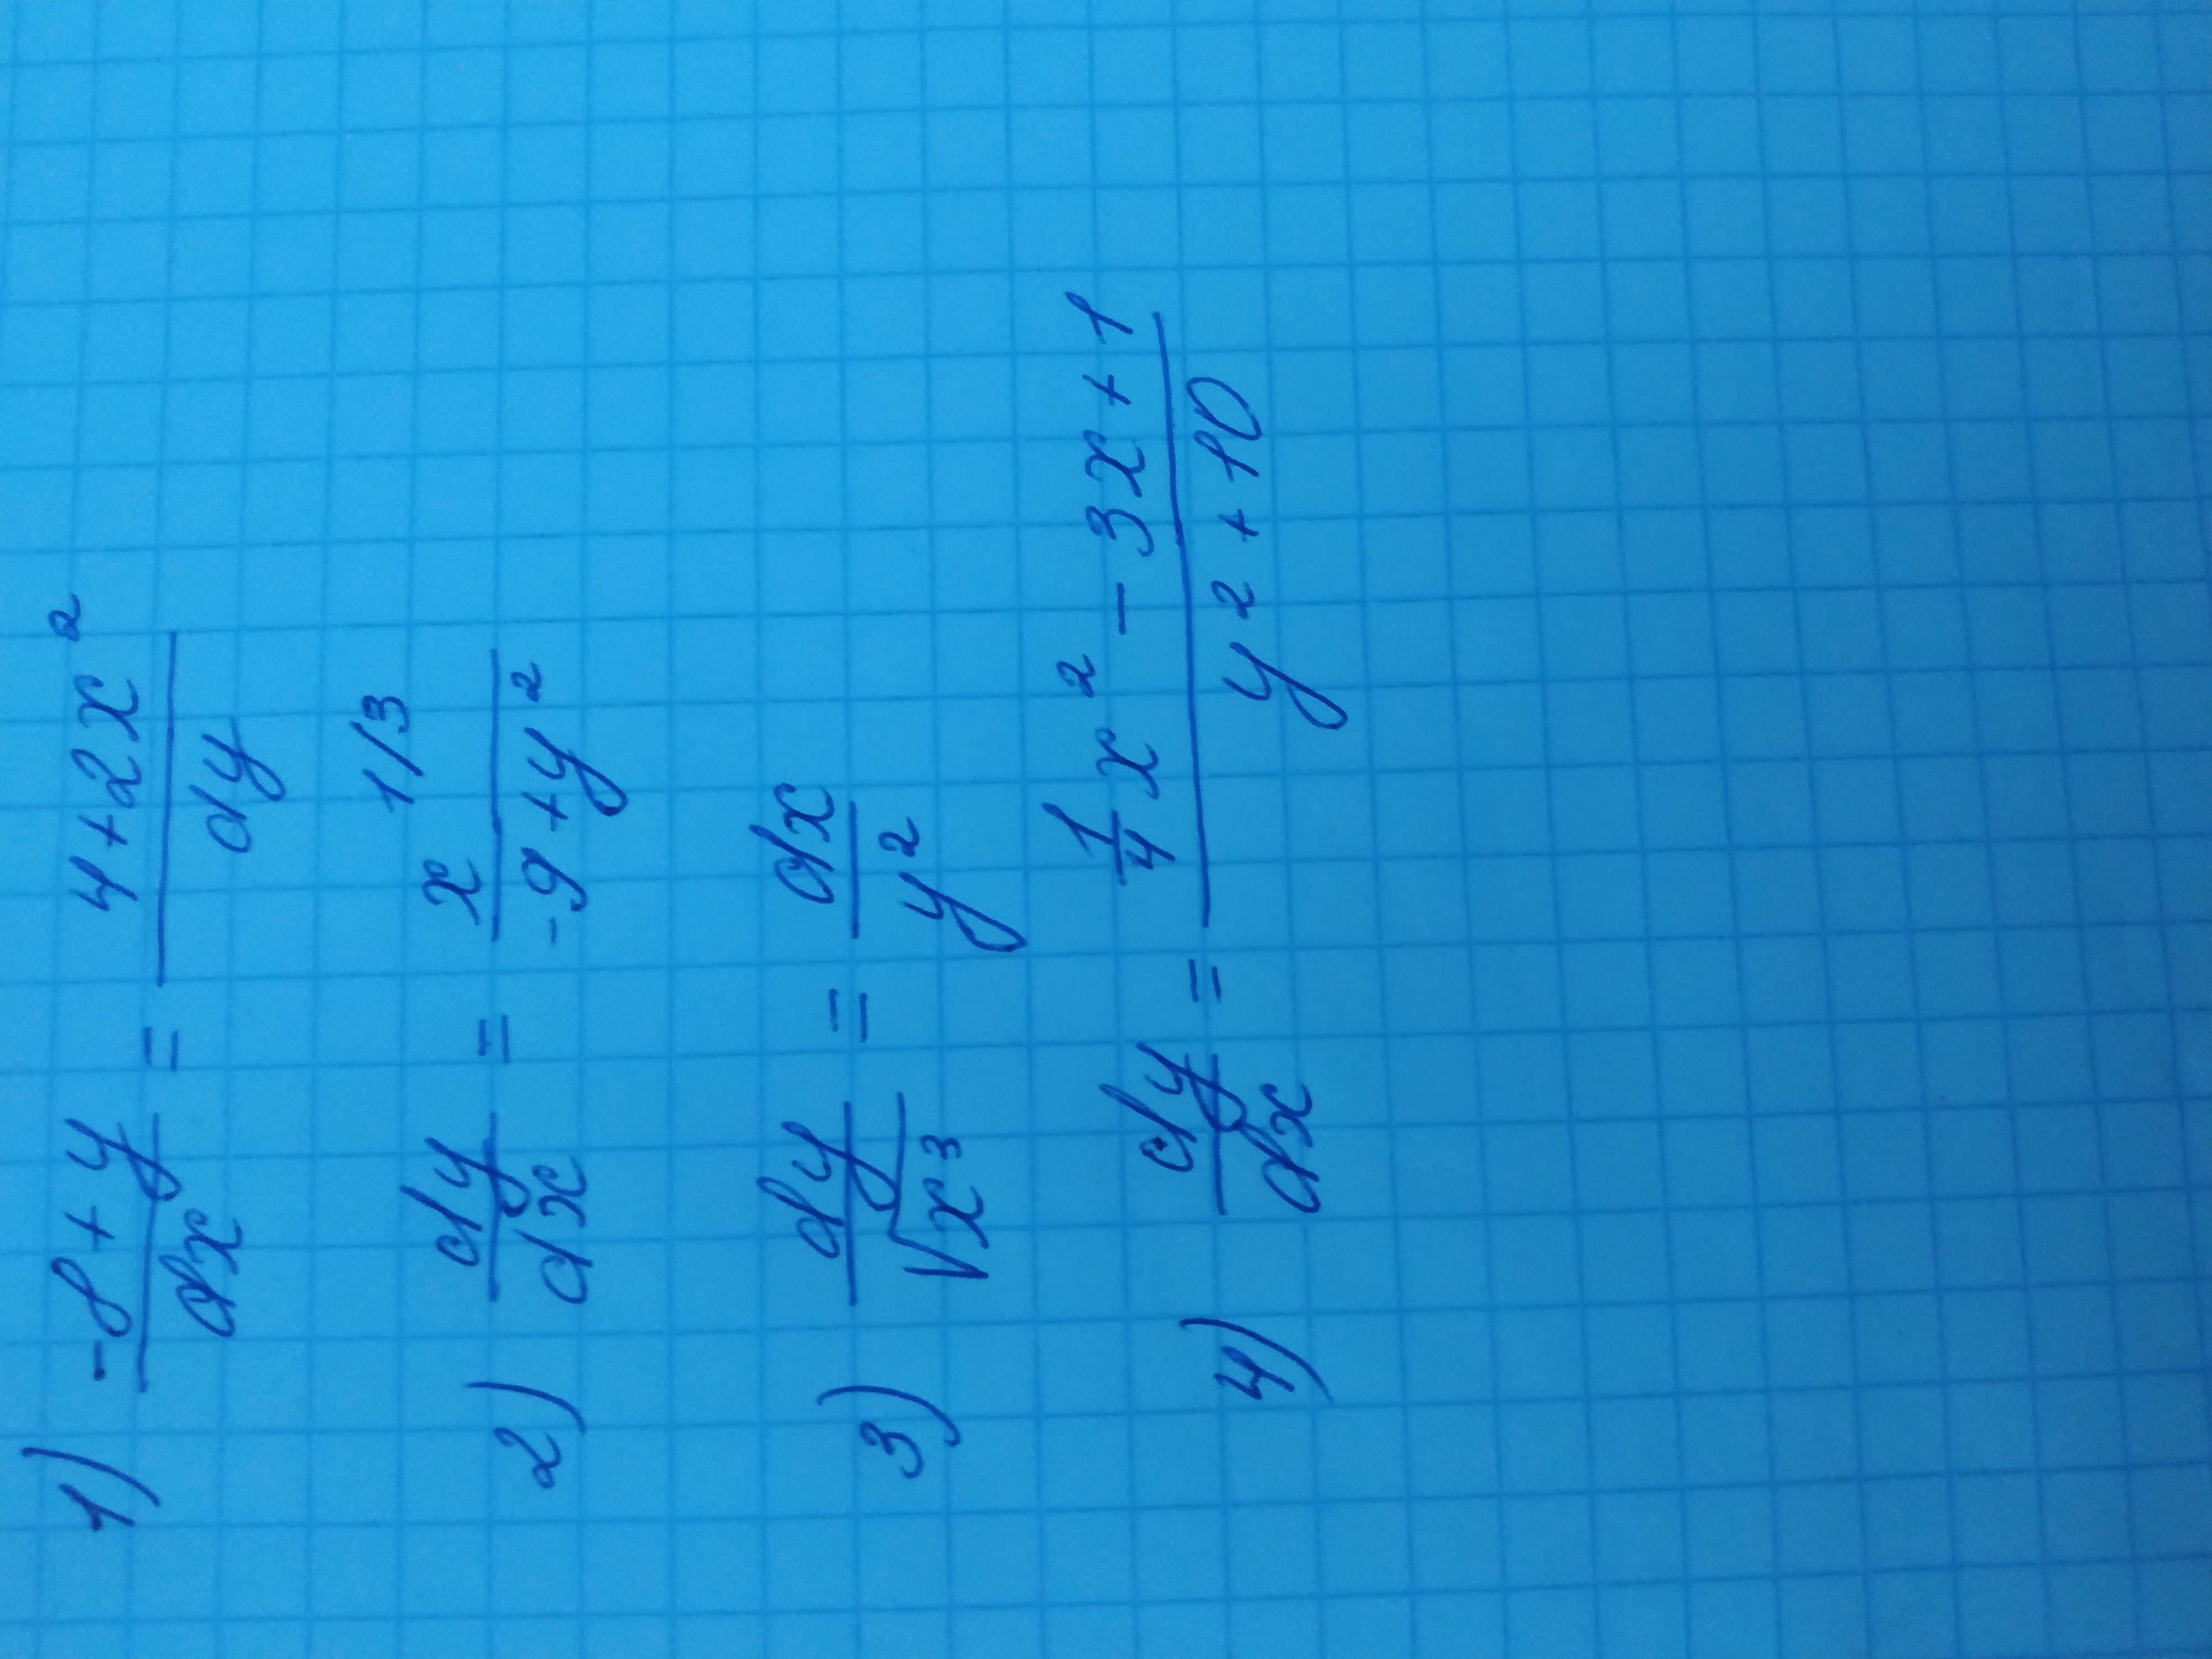 1) (-8+y)/dx = (4+2x²)/dy
2) dy/dx = x^(1/3)/(-9+y²)
3) dy/√x³ = dx/y²
4) dy/dx = (1/4 x² - 3x + 1)/(y² + 10)